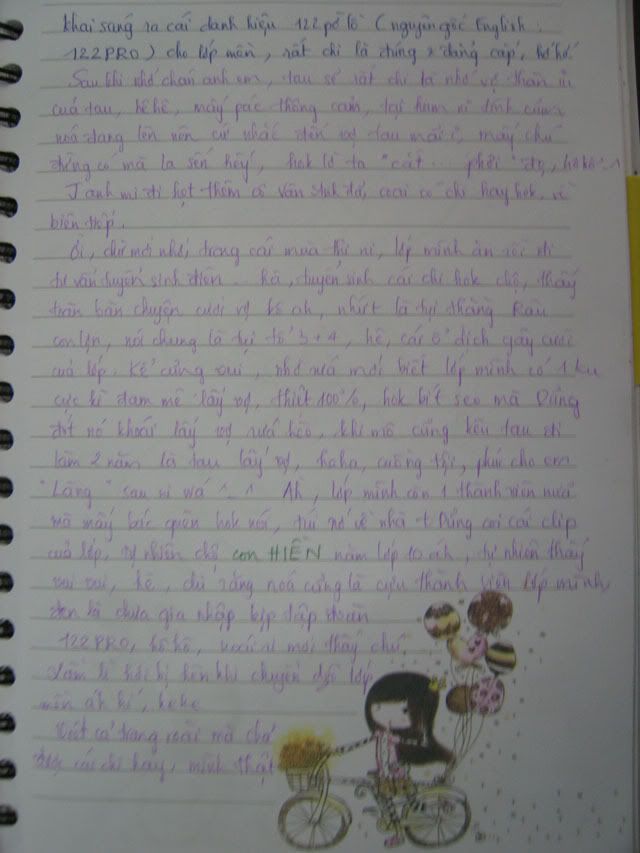 khai sáng ra cái danh hiệu 122 pờ lồ (nguyên gốc English:
122PRO) cho lớp mềnh, rất chi là đúng & đẳng cấp, hố hố.
Sau khi nhớ chán anh em, tau sẽ rất chi là nhớ vợ thân iu
của tau, hê hê, mấy pác thông cảm, tại hum ni tình cảm
noá đang lên nên cứ nhắc đến vợ tau mãi, mấy chú
đừng có mà la sến hấy, hok là ta "cắt ... phéi" đó, hô hô ^_^
J anh mi đi họt thêm cô văn sinh đó, coai có chi hay hok, về
biên tiếp.
Ồi, chừ mới nhớ, trong cái mùa thi ni, lớp mình ăn rồi đi
tư vấn tuyển sinh điên .. hà, tuyển sinh cái chi hok chộ, thấy
toàn bàn chuyện cưới vợ k ah, nhứt là tụi thằng Râu
con lợn, nói chung là tụi tổ 3+4, hê, cái ổ dịch gây cười
của lớp. Kể cũng vui, nhờ rứa mới biết lớp mình có 1 ku
cực kì đam mê lấy vợ, thiệt 100%, hok bít seo mà Dũng
đớt nó khoái lấy vợ rứa hèo, khi mô cũng kêu tau đi
làm 2 năm là tau lấy vợ, haha, cuồng tội, phúc cho em
"Lăng" sau ni wá ^_^ Ah, lớp mình còn 1 thành viên nữa
mà mấy bác quên hok nói, túi nớ về nhà t Dũng coi cái clip
của lớp, tự nhiên chộ con HIỀN năm lớp 10 áh, tự nhiên thấy
vui vui, hê, dù rằng noá cũng là cựu thành viên lớp mình,
đen là chưa gia nhập kịp tập đoàn
122PRO, hô hô, ngoài ni mới thấy chứ
lắm kẻ hối hị hên khi chuyển lớp
mền áh hí, hehe
Viết cả trang rồi mà chợ
được cái chi hay, mình thật